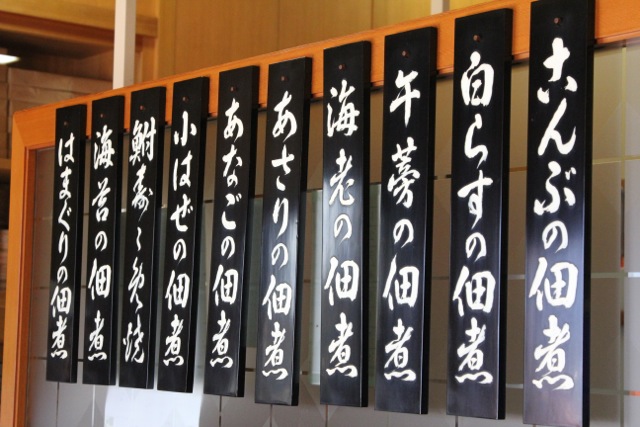 こんぶの佃煮
白らすの佃煮
午蒡の佃煮
海老の佃煮
あさりの佃煮
あなごの佃煮
小はぜの佃煮
鮒寿々め焼
海苔の佃煮
はまぐりの佃煮